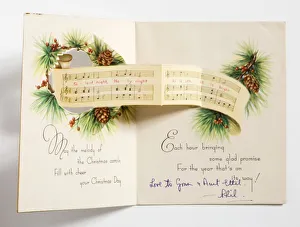 May the melody of
the Christmas carols
Fill with cheer
your Christmas Day
Each hour bringing
some glad promise
For the year that's on
its way!
Love to Gran & Aunt Ethel
Phil.